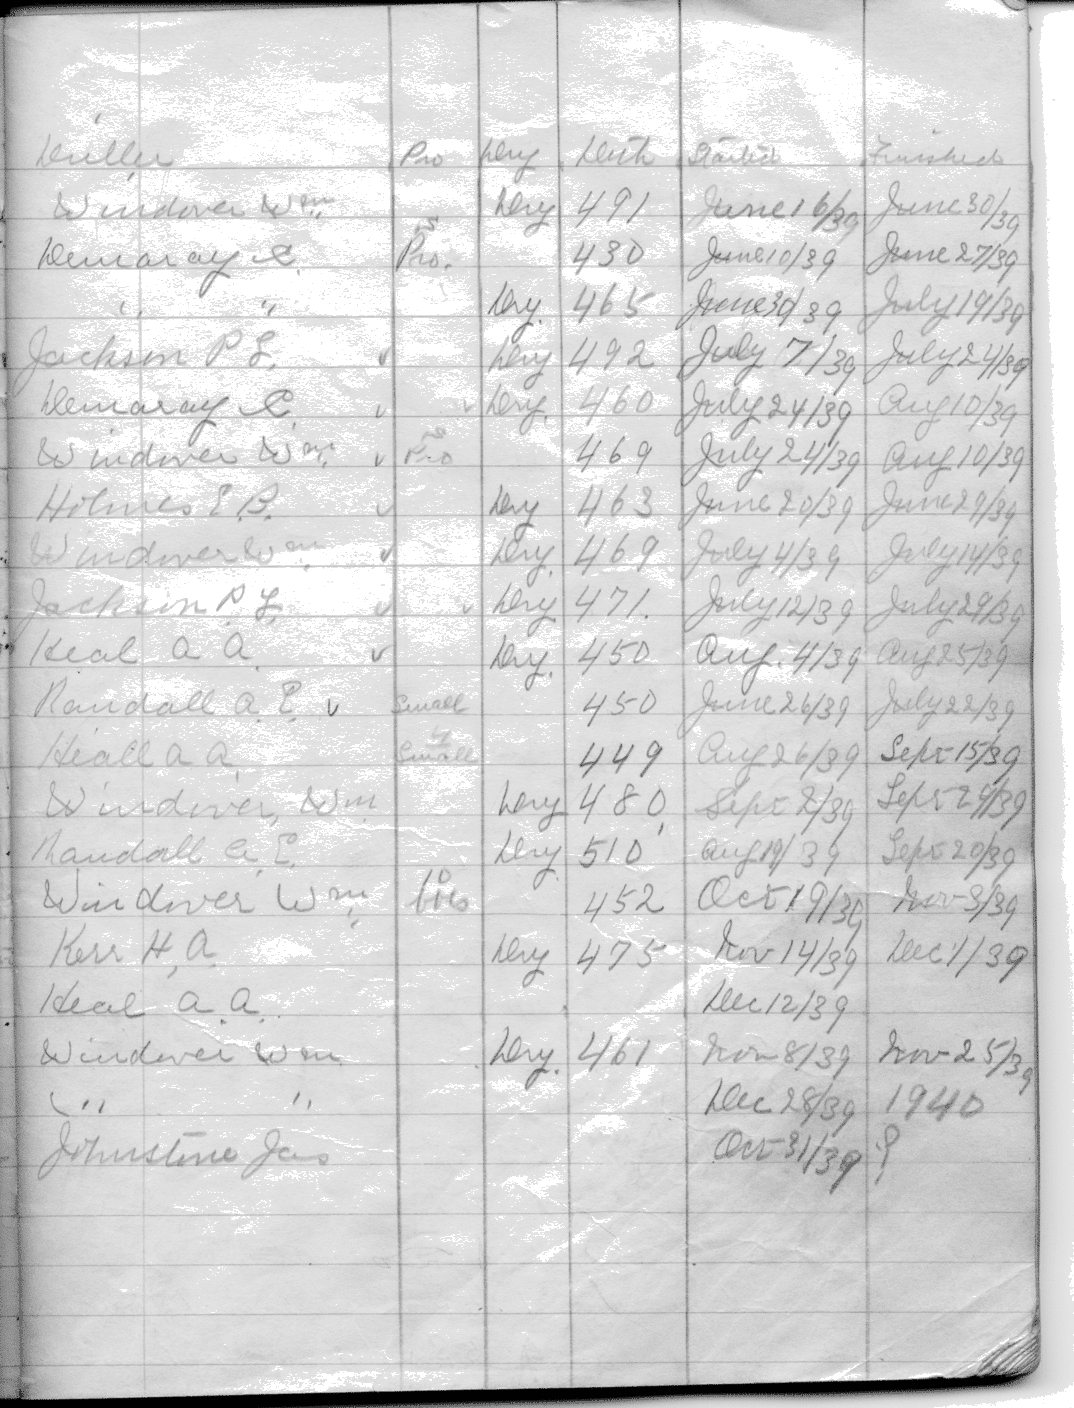 Driller Pro Dry Depth Started Finished
Windover Wm Dry 491 June 16/39 June 30/39
Demaray C. Pro. 430 June 10/39 June 27/39
" " Dry. 465 June 30/39 July 19/39
Jackson P. L. ✓ Dry 492 July 7/39 July 24/39
Demaray C. ✓ ✓ Dry. 460 July 24/39 Aug 10/39
Windover Wm. ✓ Pro 469 July 24/39 Aug 10/39
Holmes E. B. ✓ Dry 463 June 20/39 June 29/39
Windover Wm ✓ Dry. 469 July 4/39 July 14/39
Jackson P. L. ✓ ✓ Dry 471. July 12/39 July 29/39
Heal A A. ✓ Dry. 450 Aug. 4/39 Aug 25/39
Randall A. E. ✓ Small 450 June 26/39 July 22/39
Heall A A. Small 449 Aug 26/39 Sept 15/39
Windover, Wm Dry 480 Sept 2/39 Sept 29/39
Randall A. E. Dry 510 Aug 19/39 Sept 20/39
Windover Wm. 10 452 Oct 19/39 Nov 3/39
Kerr H, A. Dry 475 Nov 14/39 Dec 1/39
Heal A. A. Dec 12/39
Windover Wm Dry. 461 Nov 8/39 Nov 25/39
" " Dec 28/39 1940
Johnstone Jas Oct 31/39 ?